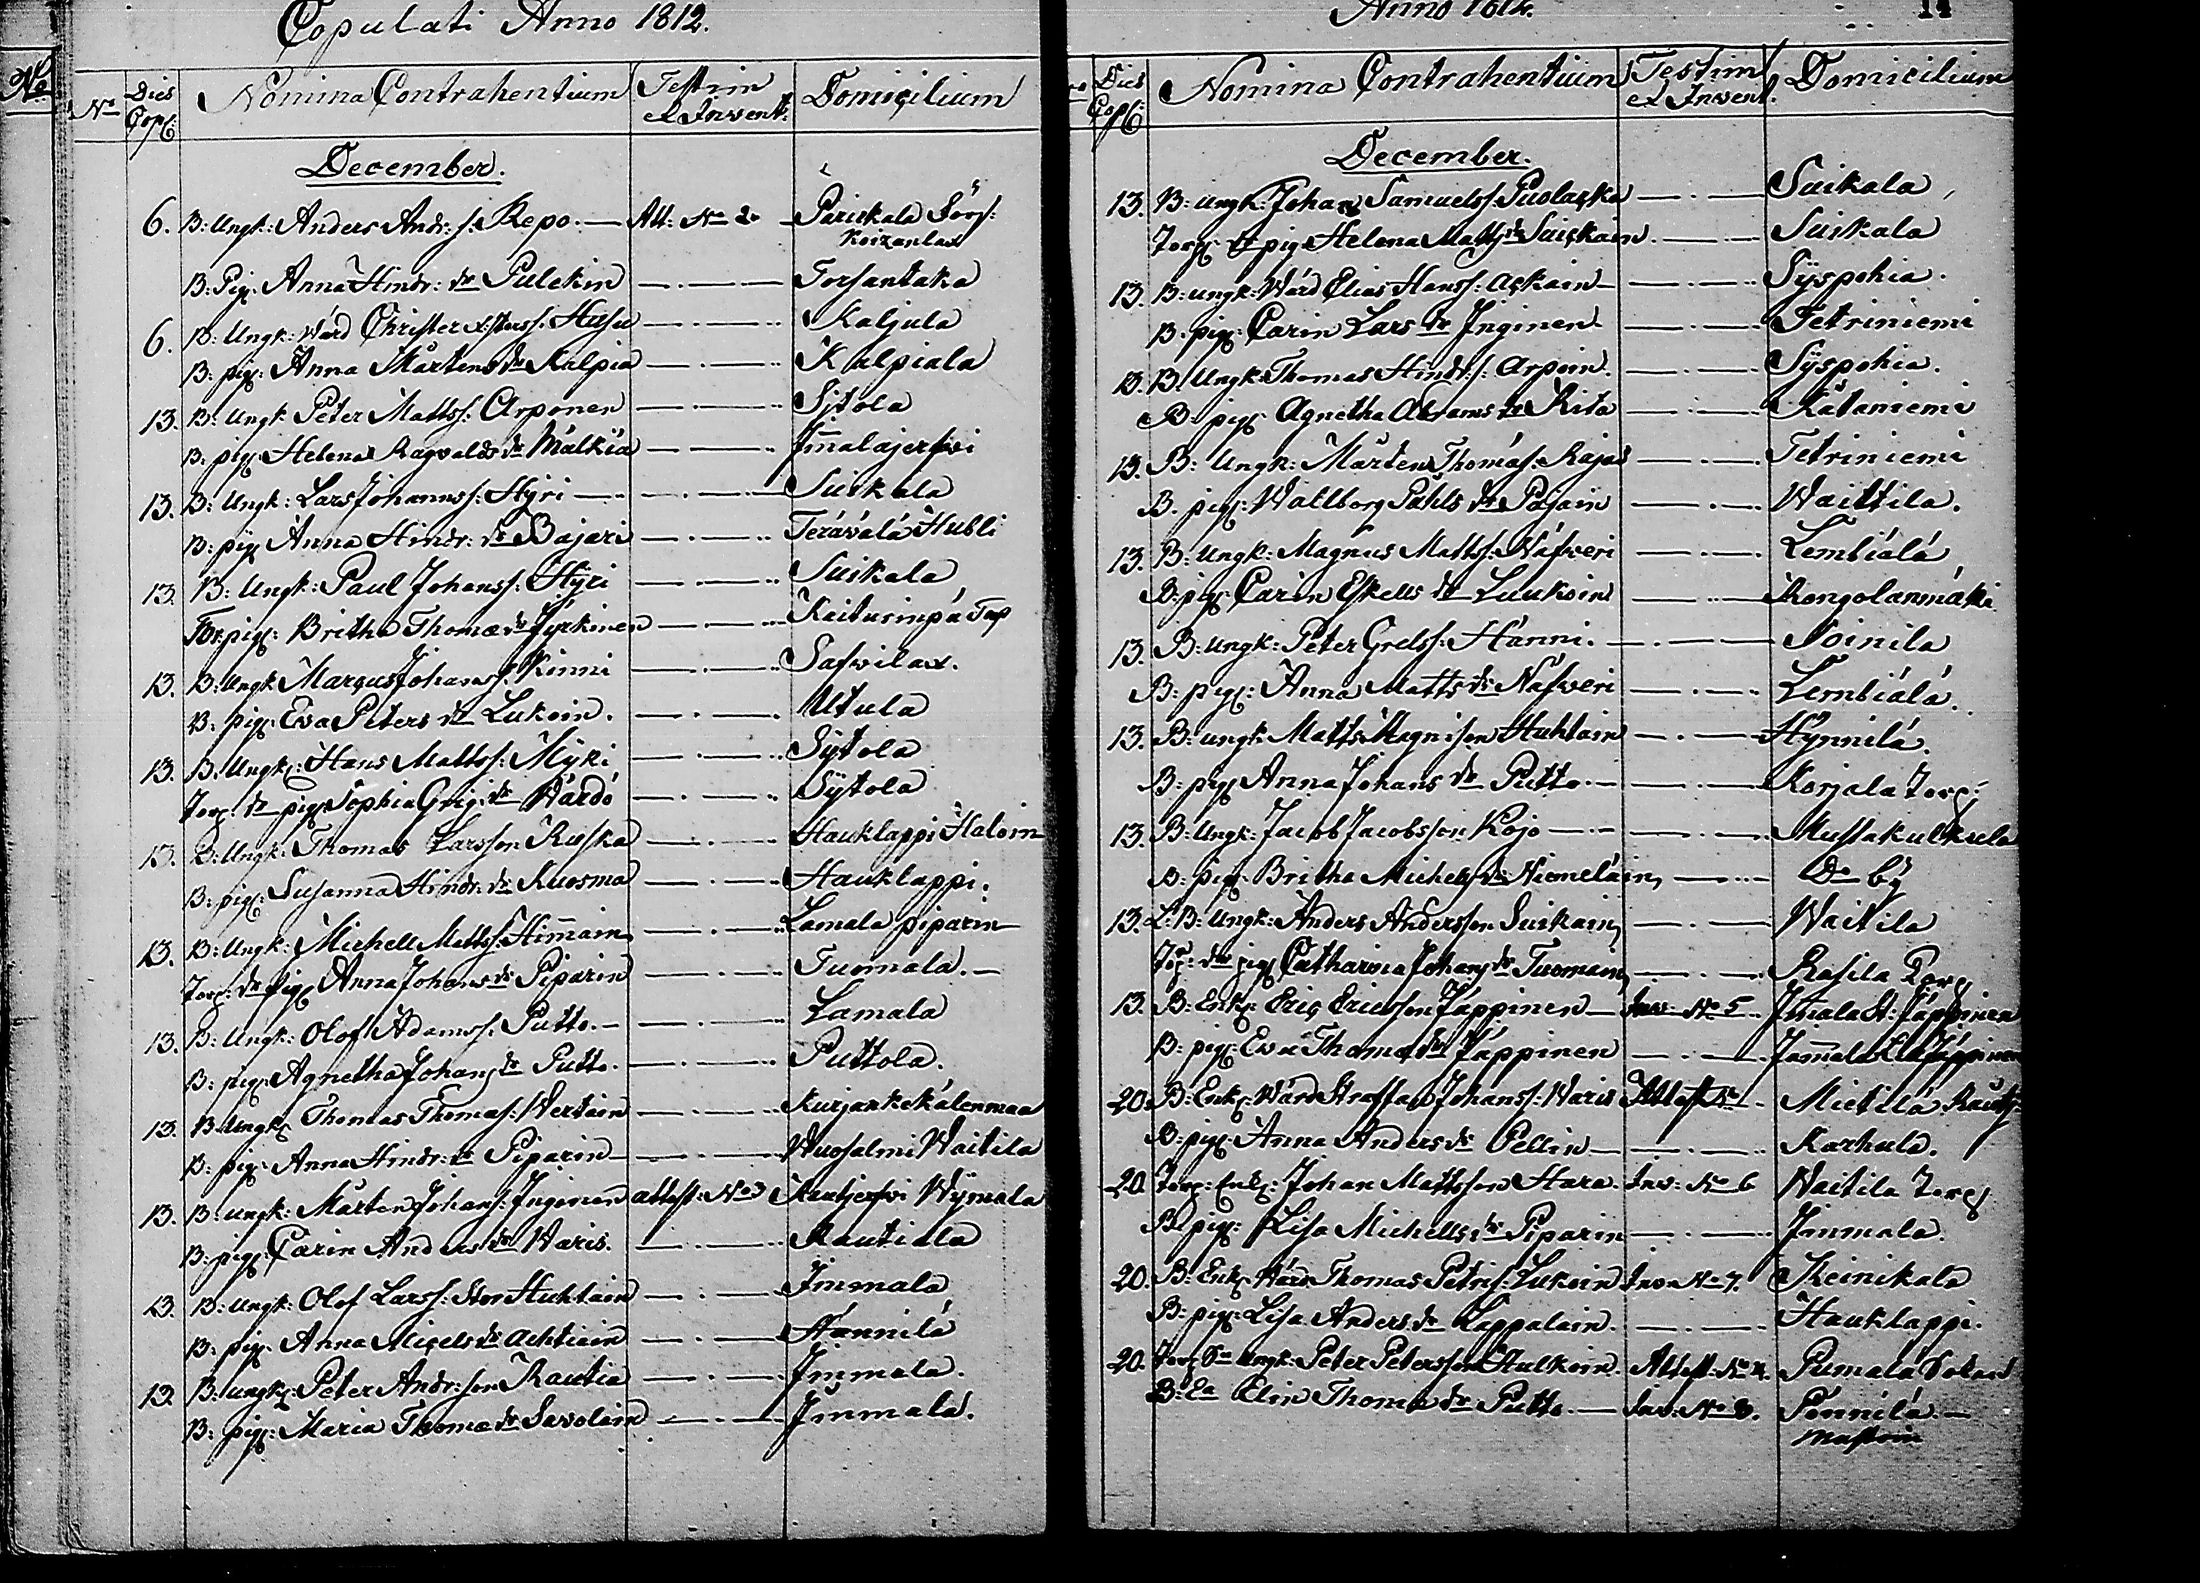 Copulati Anno 1812.
No
No Dies Cop: Nomina Contrahentium Testim & Invent: Domicilium
December.
6. B: Ungk: Anders Andr: s: Repo. — Att: No 2. Parikala Förs:
Koizanlax
B: Pig: Anna Hindr: dr Pulckin — . — Torsantaka
6. B: Ungk: Wärd Christer Husu — . — Kaljula
B: pig: Anna Mårtens dr Kalpia — . — Kalpiala
13. B: Ungk: Peter Mattss: Arponen — . — Sÿtola
B: pig: Helena Ragvalds dr Mälkiä — . — Jm̄alajerfwi
13. B: Ungk: Lars Johanns: Hÿri — . — Suikala
B: pig: Anna Hindr: dr Bajari — . — Teräwälä Hubli
13. B: Ungk: Paul Johanss: Hÿri — . — Suikala
pig: Britha Thomæ dr Jyrkinen — . — Kaiturinpä Torp
13. B: Ungk: Marcus Johanss: Kinni — . — Safwilax.
B: pig: Ewa Peters dr Lukoin. — . — Utula
13. B: Ungk: Hans Mattss: Mÿki — . — Sÿtola
Torp: dr pig: Sophia Grig: dr Wärdö — . — Sÿtola
13. B: Ungk: Thomas Larsson Ruska — . — Hauklappi Haloin
B: pig: Susanna Hindr: dr Kuosma — . — Hauklappi.
13. B: Ungk: Michell Mattss: Him̄ain — . — Lamala piparin
Torp: dr pig: Anna Johans dr Piparin — . — Tuomala. —
13. B: Ungk: Olof Adamss: Putto. — . — Lamala
B: pig: Agnetha Johans dr Putto. — . — Puttola.
13. B: Ungk: Thomas Thomas: Wertain — . — Kurjankekälenmaa
B: pig: Anna Hindr: dr Piparin — . — Wuosalmi Waitila
13. B: Ungk: Mårten Johans: Inginen attest: No 3 Rautjerfwi Wÿmala
B: pig: Carin Anders dr Waris. — . — Rautiala
13. B: Ungk: Olof Larss: Stor Huhtain — . — Immala
B: pig: Anna Micels dr Achtiain — . — Hännilä
13. B: Ungk: Peter Andr: son Rautia — . — Jmmala.
B: pig: Maria Thomæ dr Savolain — . — Jmmala.
Anno 1812. 14
Dies Cop: Nomina Contrahentium Testim & Invent. Domicilium
December.
13. B: Ungk: Johan Samuelss: Puolacka — . — Suikala
Torp: dr pig: Helena Matts dr Suickain. — . — Suikala
13. B: Ungk: Wärd Elias Hanss: Ackain — . — Sÿspohia.
B. pig: Carin Lars dr Inginen. — . — Tetriniemi
13. B: Ungk: Thomas Hindr: s: Arpoin. — . — Sÿspohia.
B. pig: Agnetha Abrams dr Rita — . — Kätaniemi
13. B: Ungk: Mårten Thomas: Rajas — . — Tetriniemi
B. pig: Wallborg Påhls dr Pajain — . — Waittila.
13. B: Ungk: Magnus Mattss: Näfweri — . — Lembiälä
B. pig: Carin Eskells dr Luukoin — . — Kongolanmäki
13. B: Ungk: Peter Grelss: Hänni. — . — Soinila
B: pig: Anna Matts dr Näfweri — . — Lembiälä.
13. B: Ungk: Matts Magnison Huhtain — . — Hÿnnilä.
B: pig: Anna Johans dr Putto. — . — Korjala Torp:
13. B: Ungk: Jacob Jacobsson Kojo — . — Mustakulkula
B: pig: Britha Michells dr Niemeläin, — . — Do bÿ
13. L: B: Ungk: Anders Andersson Suikain, — . — Waitila
Torp: dr pig: Catharina Johans dr Tuomain, — . — Rasila Torp
13. B: Enkl: Eric Ericsson Jäppinen — Inv: No 5. Jm̄ala St: Jäppinen
B: pig: Ewa Thomæ dr Jäppinen — . — Jam̄ala Jäppinen
20. B: Enkl: Wärd Staffan Johanss: Waris Attest No Mietilä Rautj:
B: pig: Anna Anders dr Pellin — . — Karhula.
20. Torp: Enkl: Johan Mattsson Hara. Inv: No 6 Waitila Torp
B: pig: Lisa Michells dr Piparin — . — Jmmala.
20. B: Enkl: Wärd Thomas Petris: Lukoin Inv. No 7. Keinikala
B: pig: Lisa Anders dr Lappalain. — . — Hauklappi.
20. Torp Sn Ungk: Peter Petersson Hulkoin. Attest: No 4. Pumala Sokn
B: Ea Elin Thomæ dr Putto. — Inv: No 8. Pennilä. —
Mustoin